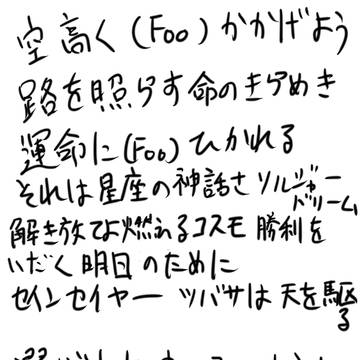 空高く(Foo)かかげよう
路を照らす命のきらめき
運命に(Foo)ひかれる
それは星座の神話さ ソルジャードリーム
解き放てよ燃えるコスモ 勝利を
いだく明日のために
セインセイヤー ツバサは天を駆る